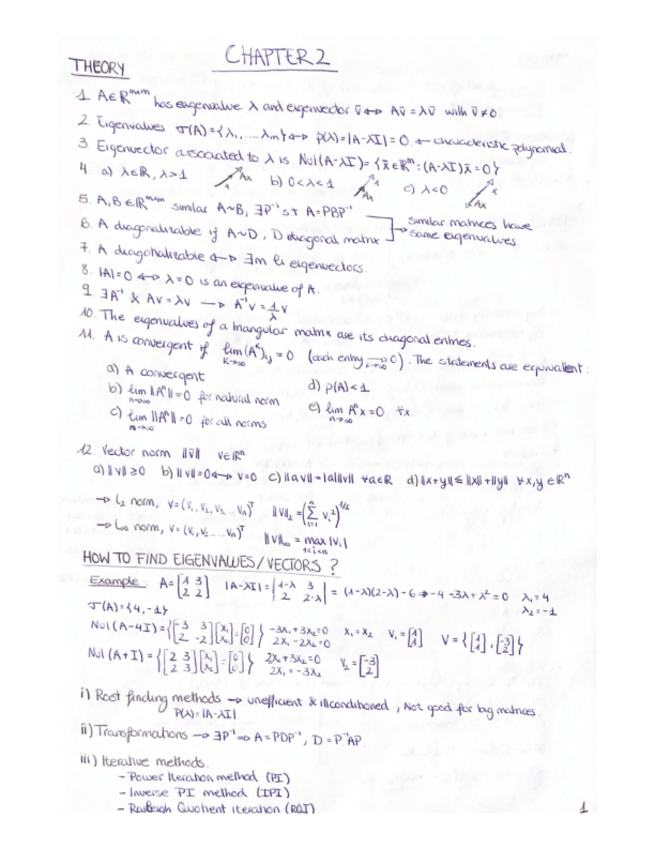 CHAPTER 2
THEORY
1. A∈ℝⁿˣⁿ has eigenvalue λ and eigenvector v̄ ↔ Av̄ = λv̄ with v̄≠0.
2. Eigenvalues σ(A)={λ₁,...λₙ} ↔ p(λ)=|A-λI|=0 ← characteristic polynomial.
3. Eigenvector associated to λ is Nul(A-λI)={x̄∈ℝⁿ:(A-λI)x̄=0}
4. a) λ∈ℝ, λ>1 x Ax b) 0<λ<1 x Ax c) λ<0 x Ax
5. A,B∈ℝⁿˣⁿ similar A~B, ∃P⁻¹ st A=PBP⁻¹
6. A diagonalizable if A~D, D diagonal matrix
similar matrices have
same eigenvalues.
7. A diagonalizable ↔ ∃n li eigenvectors.
8. |A|=0 ↔ λ=0 is an eigenvalue of A.
9. ∃A⁻¹ & Av=λv → A⁻¹v=1/λ v
10. The eigenvalues of a triangular matrix are its diagonal entries.
11. A is convergent if lim k→∞ (Aᵏ)ᵢⱼ = 0 (each entry →0 k→∞). The statements are equivalent:
a) A convergent
b) lim n→∞ ||Aⁿ||=0 for natural norm
c) lim n→∞ ||Aⁿ||=0 for all norms
d) ρ(A)<1
e) lim n→∞ Aⁿx=0, ∀x
12. Vector norm ||v̄|| v∈ℝⁿ
a) ||v||≥0 b) ||v||=0 ↔ v=0 c) ||av||=|a|||v|| ∀a∈ℝ d) ||x+y||≤||x||+||y|| ∀x,y∈ℝⁿ
→ L₂ norm, v=(v₁,v₂,v₃...vₙ)ᵀ ||v||₂=(∑ⁿᵢ₌₁ vᵢ²)^1/2
→ L∞ norm, v=(v₁,v₂...vₙ)ᵀ ||v||∞ = max 1≤i≤n |vᵢ|
HOW TO FIND EIGENVALUES/VECTORS?
Example: A=[1 3; 2 2] |A-λI|=|1-λ 3; 2 2-λ| = (1-λ)(2-λ)-6 → -4-3λ+λ²=0 λ₁=4 λ₂=-1
σ(A)={4,-1}
Nul(A-4I)={[-3 3; 2 -2][x₁; x₂]=[0; 0]} -3x₁+3x₂=0 2x₁-2x₂=0 x₁=x₂ v₁=[1; 1] V={[1; 1],[-3; 2]}
Nul(A+I)={[2 3; 2 3][x₁; x₂]=[0; 0]} 2x₁+3x₂=0 2x₁=-3x₂ v₂=[-3; 2]
i) Root finding methods → unefficient & illconditioned, Not good for big matrices.
P(λ)=|A-λI|
ii) Transformations → ∃P⁻¹ ⇒ A=PDP⁻¹, D=P⁻¹AP
iii) Iterative methods.
- Power Iteration method (PI)
- Inverse PI method (IPI)
- Rayleigh Quotient iteration (RQI)
1